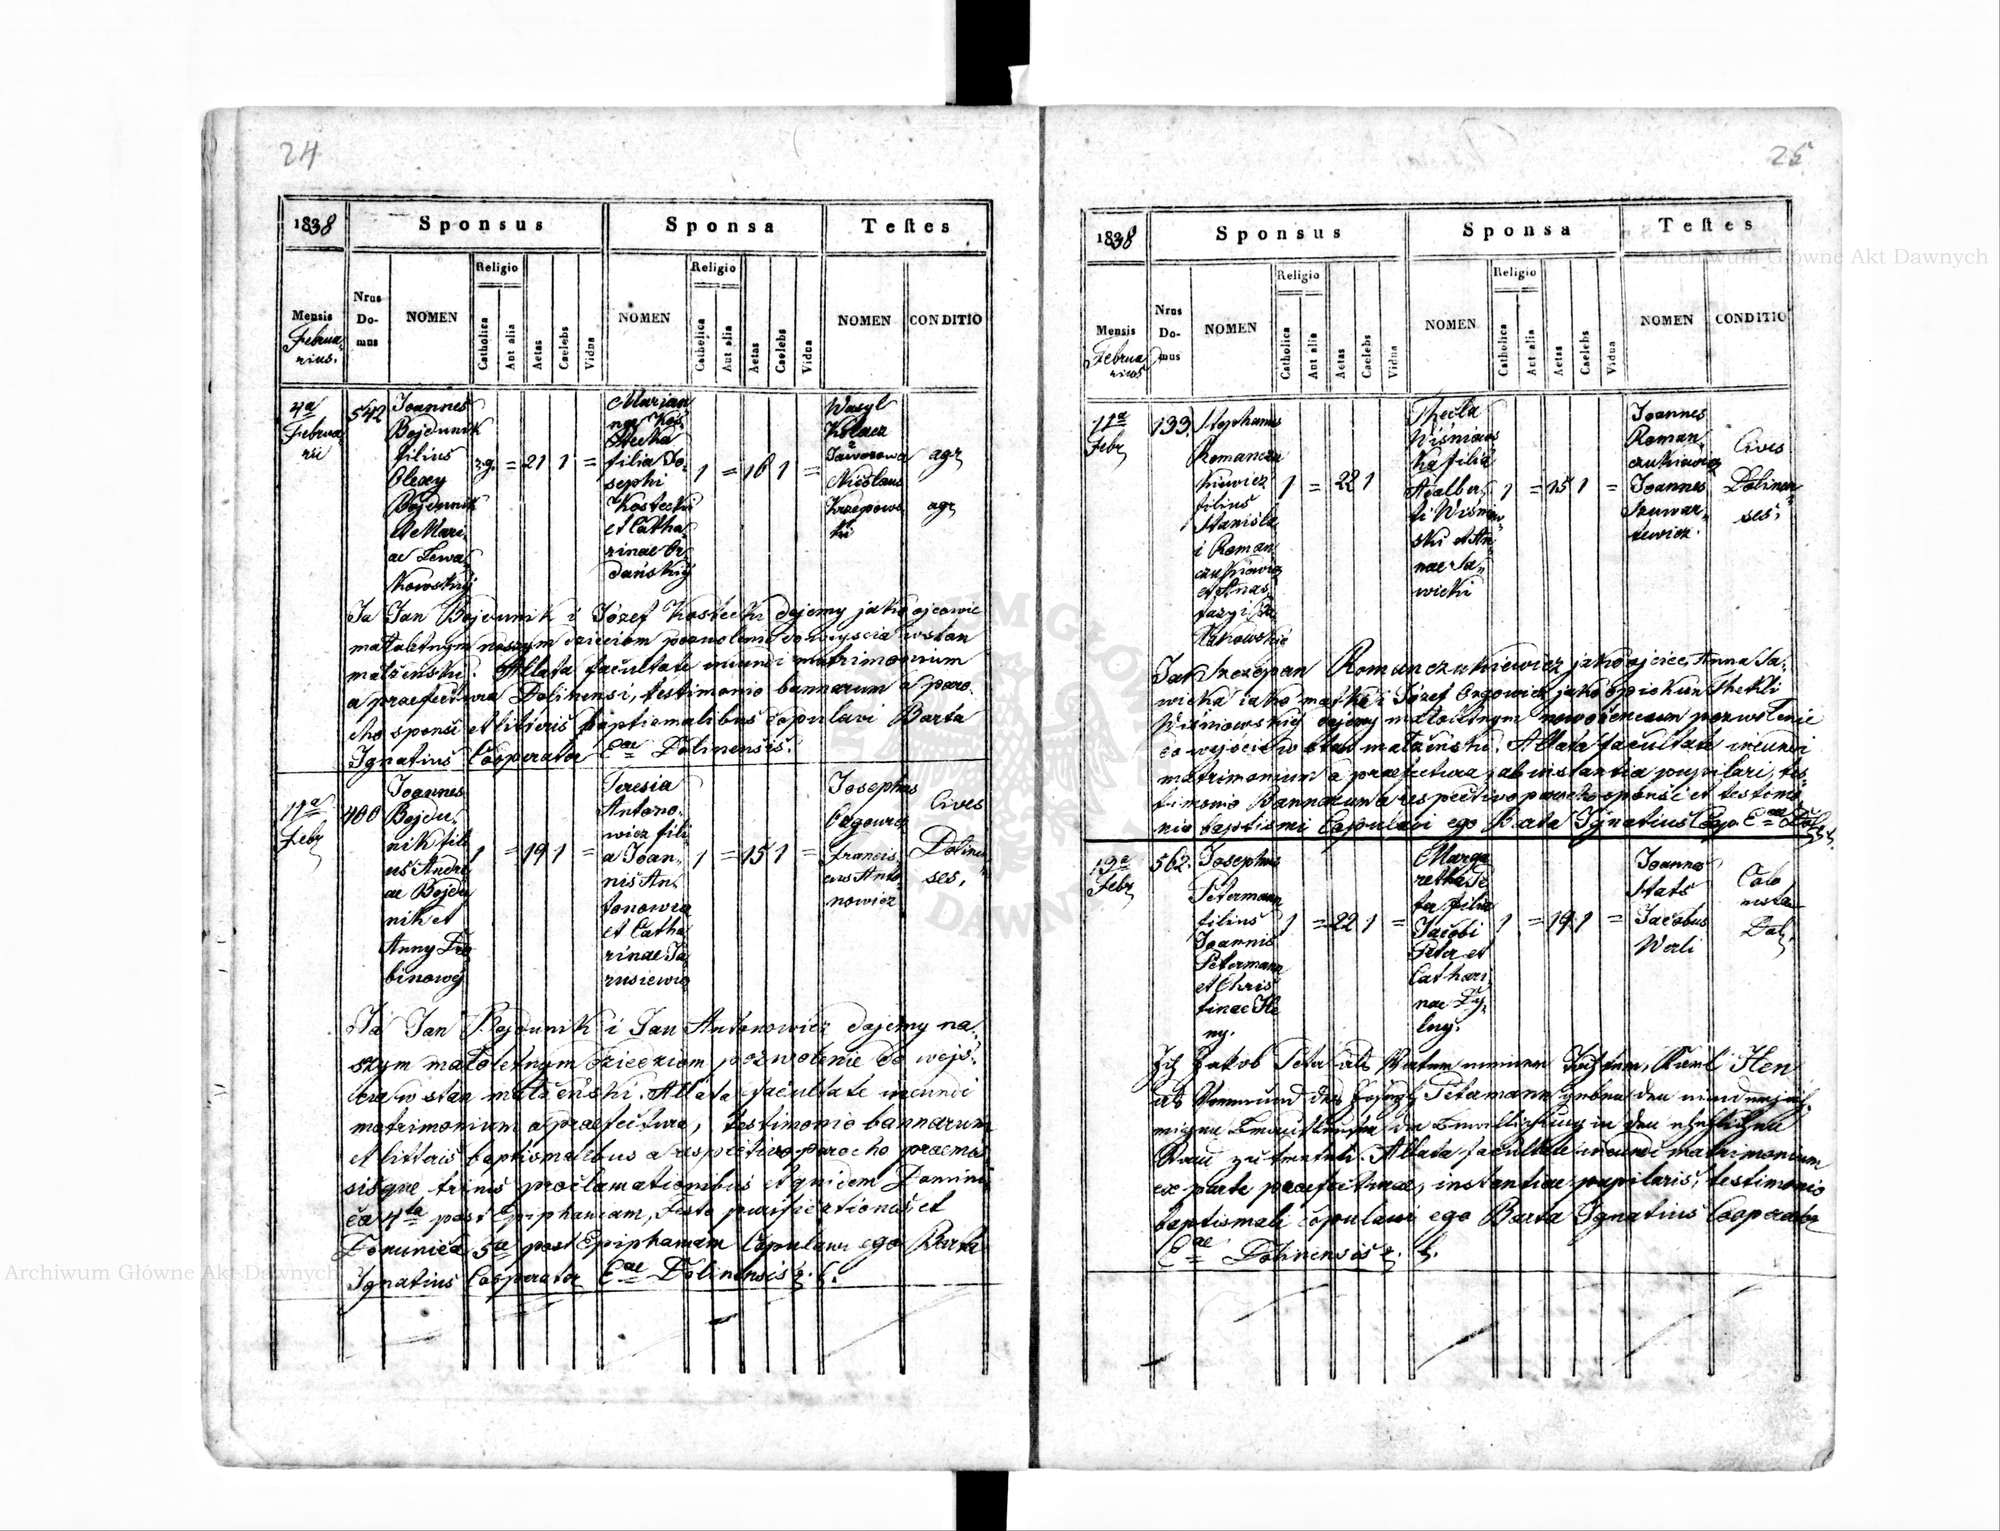 24
1838
Sponsus
Sponsa
Testes
Mensis
Februa-
rius.
Nrus
Do-
mus
NOMEN
Religio
Catholica
Aut alia
Aetas
Caelebs
Vidua
NOMEN
Religio
Catholica
Aut alia
Aetas
Caelebs
Vidua
NOMEN
CONDITIO
4a
Februa
rii
542
Joannes
Bojdunik
filius
Olexy
Bojdunik
et Mari-
ae Lewa-
kowskiy
r.g. = 21 1 =
Marian-
na Kos-
tecka
filia Jo-
sephi
Kostecki
et Catha
rinae Or-
danskiy
1 = 16 1 =
Wasyl
Kolacz
Nicolaus
agr
agr
Ja Jan Bojdunik i Józef Kostecki dajemy jako ojcowie
małoletnym naszym dzieciom pozwolenie do wnyscia w stan
małżeński. Allata facultate ineundi matrimonium
a praefectura Dolinensi, testimonio bannorum a paro-
cho sponsi et literis baptismalibus copulavi Barta
Ignatius Cooperator Eae Dolinensis.
11a
Feb
400
Joannes
Bojdu-
nik fili
us Andre
ae Bojdu
nik et
Anny
binowey
1 = 19 1 =
Teresia
Antono-
wicz fili
a Joan-
nis An-
tonowicz
et Catha
rinae Ja
rusiewicz
1 = 15 1 =
Josephus
Francis-
cus Anto-
nowicz
Cives
Dolinen-
ses,
Ja Jan Bojdunik i Jan Antonowicz dajemy na-
szym małoletnym dzieciom pozwolenie do wejś-
cia w stan małżeński. Allata facultate ineundi
matrimonium a praefectura, testimonio bannorum
et litteris baptismalibus a respectivo parocho praemis
sisque trinis proclamationibus et quidem Domini-
ca 4ta post Epiphaniam, Festo purificationis et
Dominica 5a post Epiphaniam Copulavi ego Barta
Ignatius Cooperator Eae Dolinensis
25
1838
Sponsus
Sponsa
Testes
Mensis
Februa
rius
Nrus
Do-
mus
NOMEN
Religio
Catholica
Aut alia
Aetas
Caelebs
Vidua
NOMEN
Religio
Catholica
Aut alia
Aetas
Caelebs
Vidua
NOMEN
CONDITIO
11a
Febr
133.
Stephanus
Romanczu
kiewicz
filius
Stanisla
i Roman
czukiewicz
et Anas
tazyi
1 = 22 1
Thecla
Wiśniows
ka filia
Adalber-
ti Wisniow-
ski et An-
nae Sa-
wicki
1 = 15 1 =
Joannes
Roman-
czukiewicz
Joannes
Szuwar-
Cives
Dolinen-
ses,
Jak Szczepan Romanczukiewicz jako ojciec, Anna Sa-
wicka jako matka i Józef jako opiekun Thekli
Wiśniowskiey dajemy małoletnym nowożeńcom pozwolenie
do wejście w stan małżeński. Allata facultate ineundi
matrimonium a praefectura, ab instantia pupilari, tes-
timonio Bannorum a respectivo parocho sponsi et testimo-
nio baptismi Copulavi ego Barta Ignatius Coop Eae
19a
Febr
562.
Josephus
Petermann
filius
Joannis
Petermann
et Chris
tinae He
ny.
1 = 22 1 =
Marga
retha Pe
ter filia
Jacobi
Peter et
Cathari
nae
1 = 19 1 =
Joannes
Stats
Jacobus
Werli
Colo
nistae
Dol
Ich Jakob Peter als Vater meiner Tochter, Karl Hen
als Vormund des Joseph Petermann geben den minderjäh-
rigen Brautleuten die Bewilligung in den ehelichen
Stand zu treten. Allata facultate ineundi matrimonium
ex parte praefecturae, instantiae pupilaris, testimonio
baptismali copulavi ego Barta Ignatius Cooperator
Eae Dolinensis
Archiwum Główne Akt Dawnych
Archiwum Główne Akt Dawnych